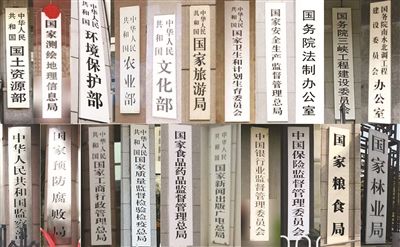 中华人民
共和国
国土资源部
国家测绘地理信息局
中华人民
共和国
环境保护部
中华人民
共和国
农业部
中华人民
共和国
文化部
中华人民
共和国
国家旅游局
中华人民
共和国
国家卫生和计划生育委员会
国家安全生产监督管理总局
国务院法制办公室
国务院三峡工程建设委员会
国务院南水北调工程
建设委员会
办公室
中华人民共和国监察部
国家预防腐败局
中华人民
共和国
国家工商行政管理总局
中华人民
共和国
国家质量监督检验检疫总局
国家食品药品监督管理总局
中华人民
共和国
国家新闻出版广电总局
中国银行业监督管理委员会
中国保险监督管理委员会
国家粮食局
国家林业局